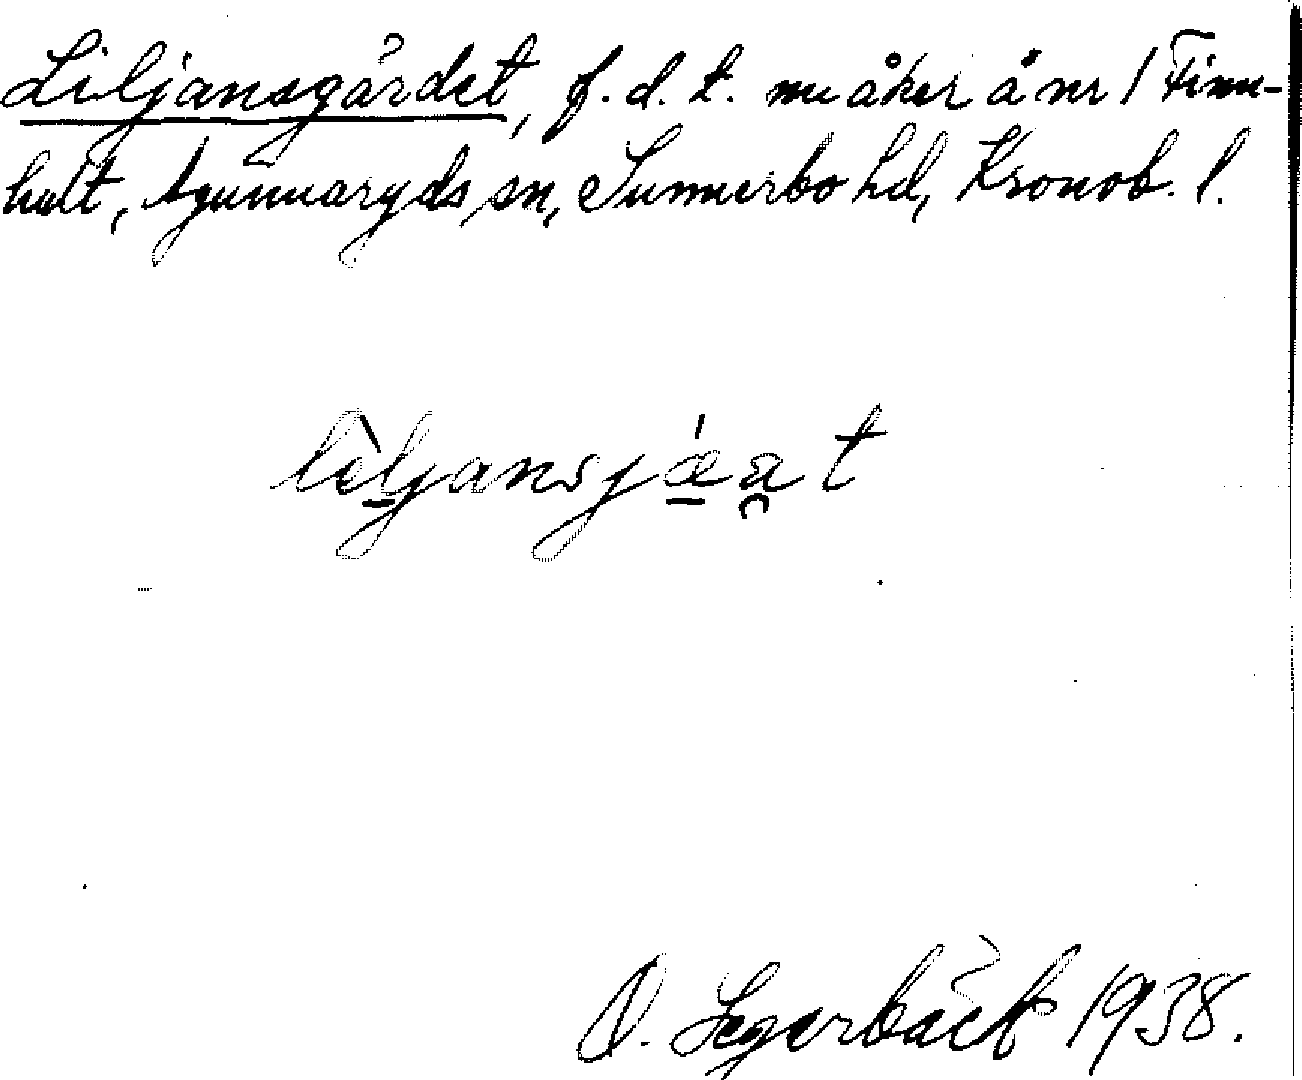 Liljansgärdet, f.d.t. nu åker å nr 1 Finn-
hult, Agunnaryds sn, Sunnerbo hd, Kronob. l.
lìljansjǽa̯t
O. Segerbäck 1938.